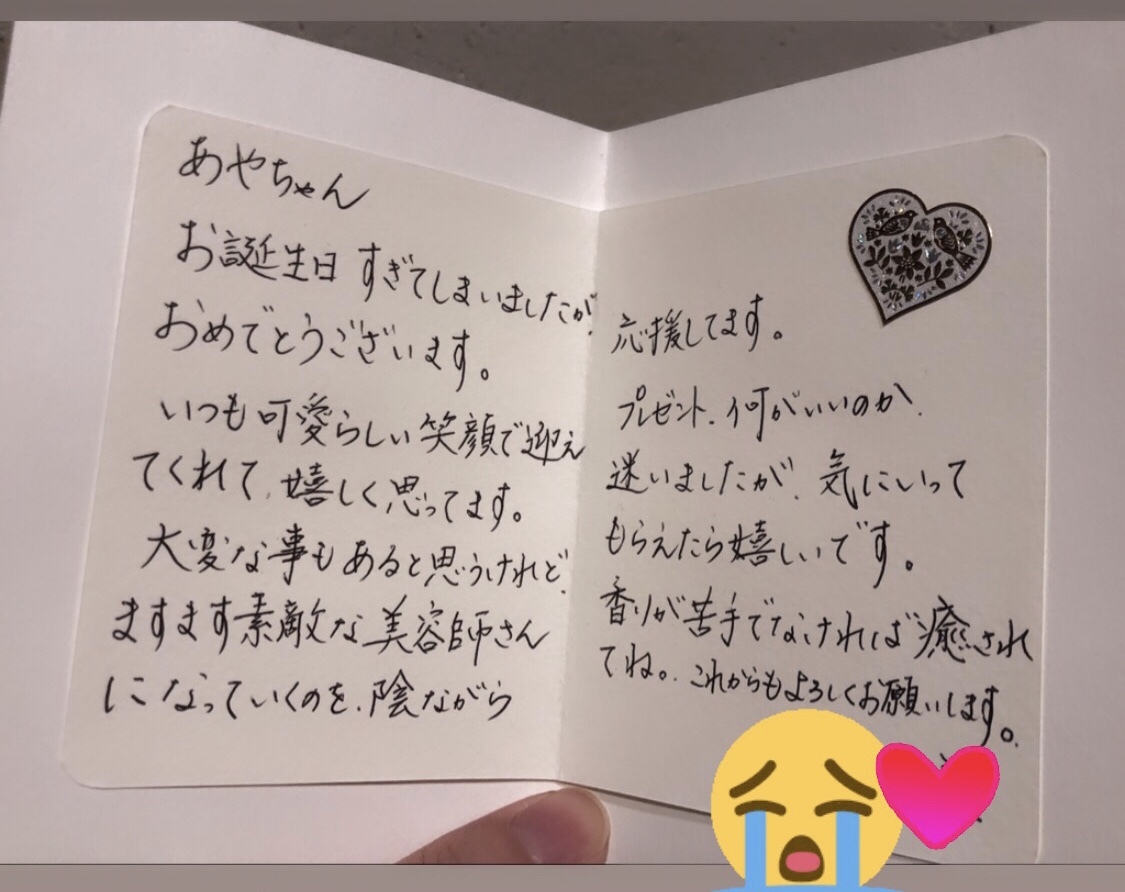 あやちゃん
お誕生日すぎてしまいましたが、
おめでとうございます。
いつも可愛らしい笑顔で迎え
てくれて、嬉しく思ってます。
大変な事もあると思うけれど、
ますます素敵な美容師さん
になっていくのを、陰ながら
応援してます。
プレゼント、何がいいのか、
迷いましたが、気にいって
もらえたら嬉しいです。
香りが苦手でなければ癒されて
てね。これからもよろしくお願いします。